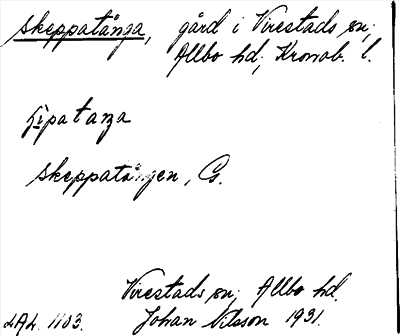 Skeppatånga, gård i Virestads sn;
Allbo hd; Kronob. l.
Skeppatången, G.
Virestads sn; Allbo hd.
LAL. 1103. Johan Nilsson 1931.